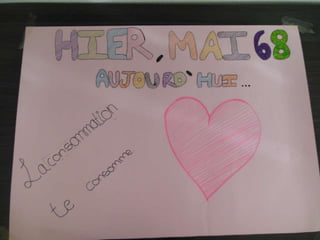 HIER, MAI 68
AUJOURD'HUI...
La consommation
te consomme